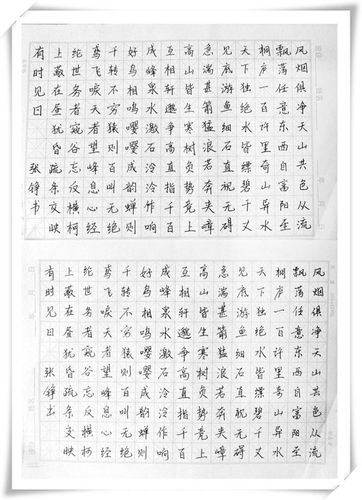 风烟俱净天山共色从流
飘荡任意东西自富阳至
桐庐一百许里奇山异水
天下独绝水皆缥碧千丈
见底游鱼细石直视无碍
急湍甚箭猛浪若奔夹岸
高山皆生寒树负势竞上
互相轩邈争高直指千百
成峰泉水激石泠泠作响
好鸟相鸣嘤嘤成韵蝉则
千转不穷猿则百叫无绝
鸢飞唳天者望峰息心经
纶世务者窥谷忘反横柯
上蔽在昼犹昏疏条交映
有时见日 张铮书
风烟俱净天山共色从流
飘荡任意东西自富阳至
桐庐一百许里奇山异水
天下独绝水皆缥碧千丈
见底游鱼细石直视无碍
急湍甚箭猛浪若奔夹岸
高山皆生寒树负势竞上
互相轩邈争高直指千百
成峰泉水激石泠泠作响
好鸟相鸣嘤嘤成韵蝉则
千转不穷猿则百叫无绝
鸢飞唳天者望峰息心经
纶世务者窥谷忘反横柯
上蔽在昼犹昏疏条交映
有时见日 张铮书